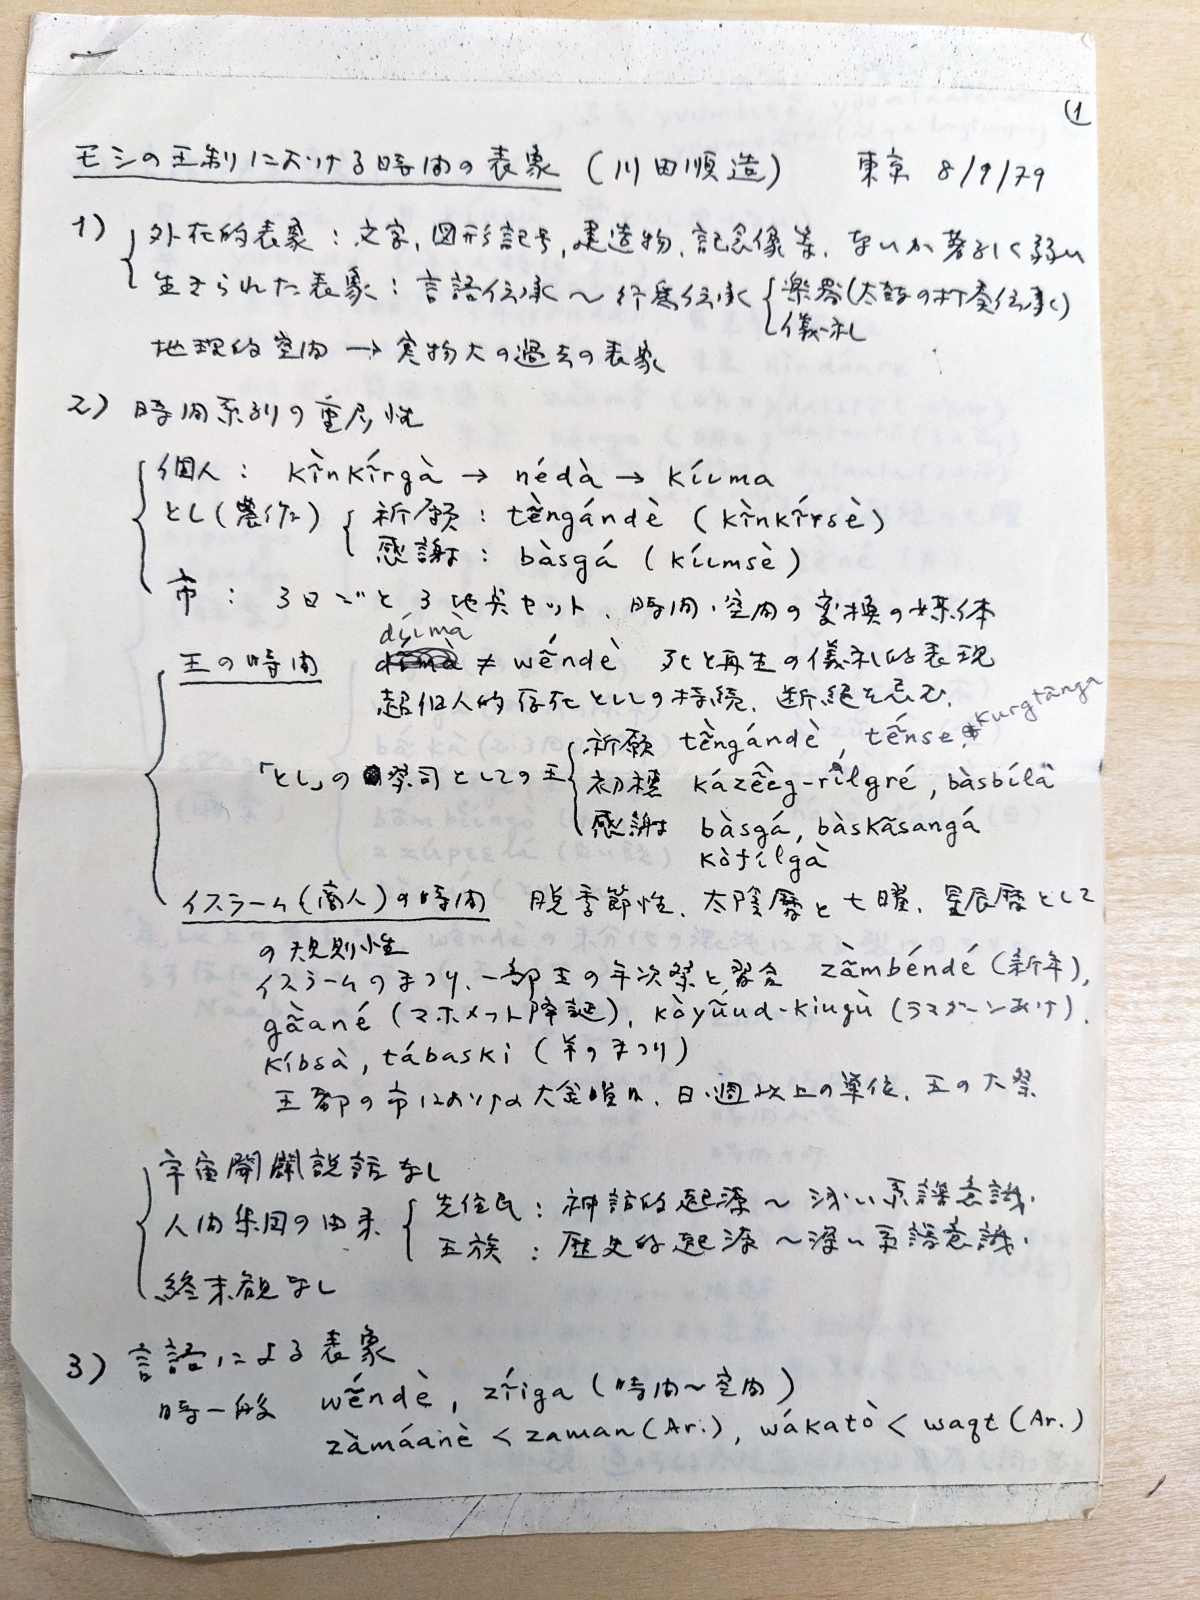 (1
モシの王制における時間の表象 (川田順造) 東京 8/9/79
1) 外在的表象 : 文字, 図形記号, 建造物, 記念像等, ないか著しく弱い
生きられた表象 : 言語伝承 ～ 行為伝承 楽器(太鼓の打奏伝承)
儀礼
地理的空間 → 実物大の過去の表象
2) 時間系列の重層性
個人 : kĩ̀nkírgà → nédà → kíima
とし(農作) 祈願 : tẽ̀ngándè (kĩ̀nkírsè)
感謝 : bàsgá (kíimsè)
市 : 3日ごと 3地点セット, 時間・空間の変換の媒体
díimà
王の時間 ≠ wẽ́ndè 死と再生の儀礼的表現
超個人的存在としての持続, 断絶を忌む,
kurgtãnga
祈願 tẽ̀ngándè, tẽ́nse,
「とし」の 祭司としての王 初穂 kázẽ̂eg-rílgré, bàsbílà
感謝 bàsgá, bàskãsangá
kòfílgà
イスラーム(商人)の時間 脱季節性, 太陰暦と七曜, 星辰暦として
の規則性
イスラームのまつり, 一部王の年次祭と習合 zàmbéndé (新年),
gãané (マホメット降誕), kòyũ̀ud-kiugù (ラマダーンあけ),
kíbsà, tábaski (羊のまつり)
王都の市における大金曜日, 日・週以上の単位, 王の大祭
宇宙開闢説話なし
人間集団の由来 先住民 : 神話的起源 ～ 浅い系譜意識.
王族 : 歴史的起源 ～ 深い系譜意識.
終末観なし
3) 言語による表象
時一般 wẽ́ndè, zĩ́iga (時間～空間)
zàmáanè < zaman (Ar.), wákatò < waqt (Ar.)